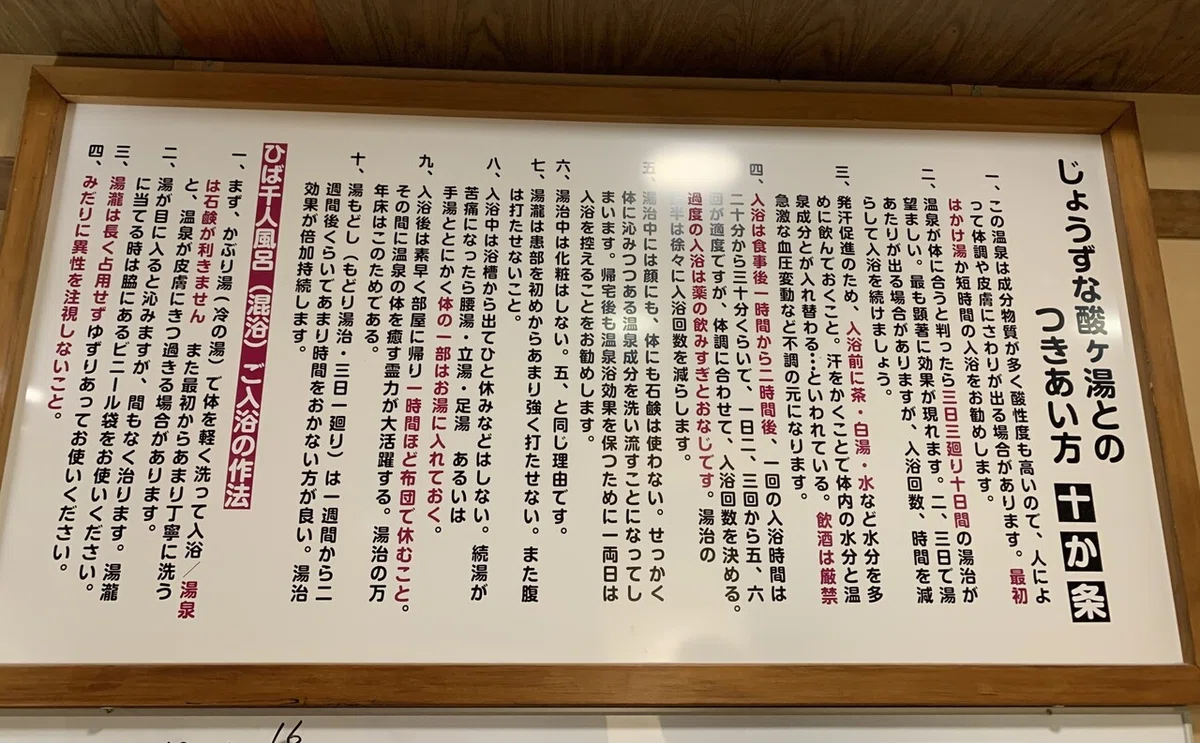 じょうずな酸ヶ湯との
つきあい方 十か条
一、この温泉は成分物質が多く酸性度も高いので、人によ
って体調や皮膚にさわりが出る場合があります。最初
はかけ湯か短時間の入浴をお勧めします。
二、温泉が体に合うと判ったら三日三廻り十日間の湯治が
望ましい。最も顕著に効果が現れます。二、三日で湯
あたりが出る場合がありますが、入浴回数、時間を減
らして入浴を続けましょう。
三、発汗促進のため、入浴前に茶・白湯・水など水分を多
めに飲んでおくこと。汗をかくことで体内の水分と温
泉成分とが入れ替わる…といわれている。飲酒は厳禁
急激な血圧変動など不調の元になります。
四、入浴は食事後一時間から二時間後、一回の入浴時間は
二十分から三十分くらいで、一日二、三回から五、六
回が適度ですが、体調に合わせて、入浴回数を決める。
過度の入浴は薬の飲みすぎとおなじです。湯治の
半は徐々に入浴回数を減らします。
五、湯治中には顔にも、体にも石鹸は使わない。せっかく
体に沁みつつある温泉成分を洗い流すことになってし
まいます。帰宅後も温泉浴効果を保つために一両日は
入浴を控えることをお勧めします。
六、湯治中は化粧はしない。五、と同じ理由です。
七、湯瀧は患部を初めからあまり強く打たせない。また腹
は打たせないこと。
八、入浴中は浴槽から出てひと休みなどはしない。続湯が
苦痛になったら腰湯・立湯・足湯 あるいは
手湯とにかく体の一部はお湯に入れておく。
九、入浴後は素早く部屋に帰り一時間ほど布団で休むこと。
その間に温泉の体を癒す霊力が大活躍する。湯治の万
年床はこのためである。
十、湯もどし（もどり湯治・三日一廻り）は一週間から二
週間後くらいであまり時間をおかない方が良い。湯治
効果が倍加持続します。
ひば千人風呂（混浴）ご入浴の作法
一、まず、かぶり湯（冷の湯）で体を軽く洗って入浴／湯泉
は石鹸が利きません また最初からあまり丁寧に洗う
と、温泉が皮膚にきつ過ぎる場合があります。
二、湯が目に入ると沁みますが、間もなく治ります。湯瀧
に当てる時は脇にあるビニール袋をお使いください。
三、湯瀧は長く占用せずゆずりあってお使いください。
四、みだりに異性を注視しないこと。
16